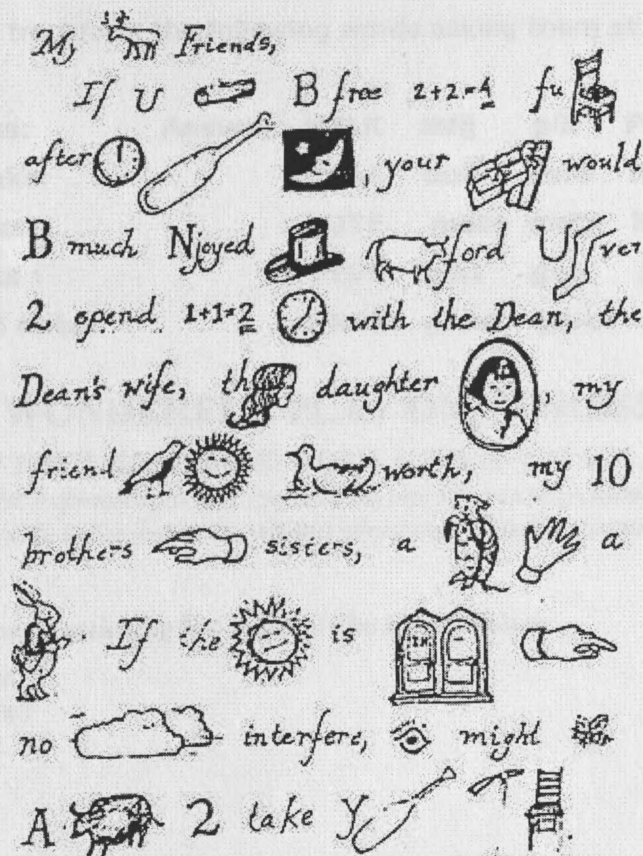 My Friends,
If U B free 2+2=4 fu
after , your would
B much Njoyed ford U ver
2 spend 1+1=2 with the Dean, the
Dean's wife, th daughter , my
friend worth, my 10
brothers sisters, a a
If the is
no interfere, might
A 2 take Y